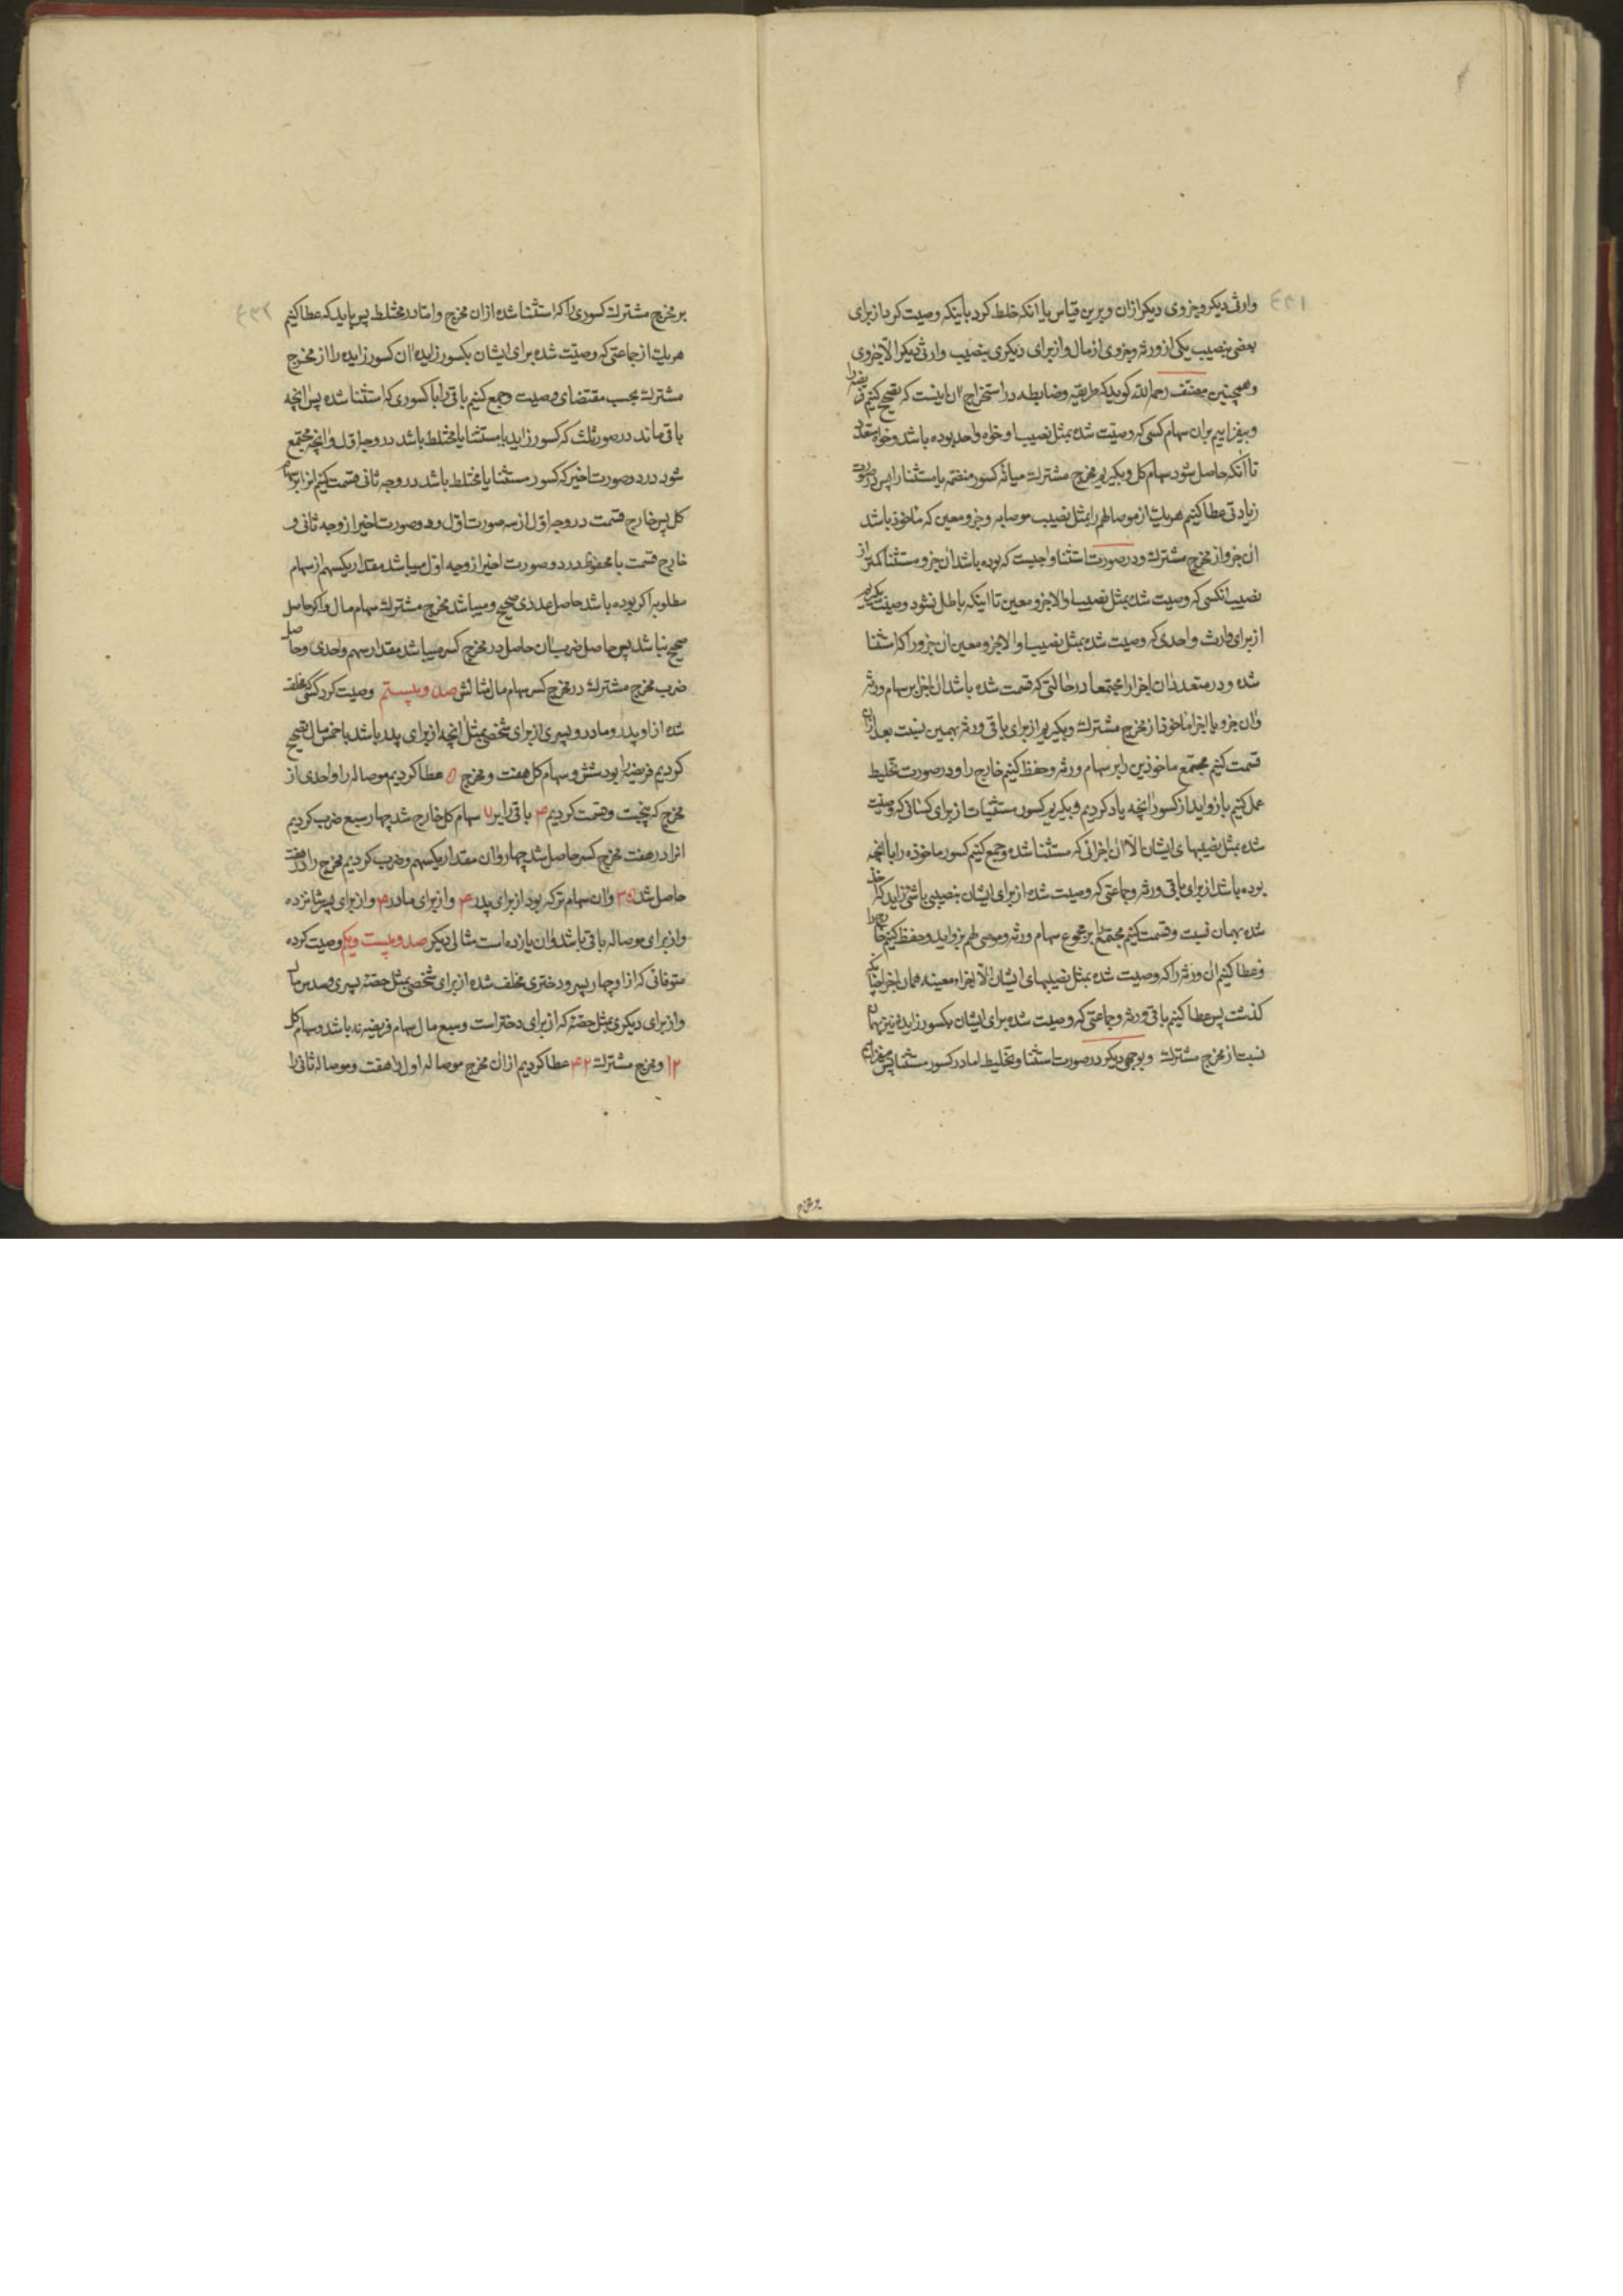 وارثی دیکر و جزوی دیکر ازان و برین قیاس یا انکه خلط کرد باینکه وصیت کرد از برای
بعضی بنصیب یکی از ورثه و جزوی از مال و از برای دیکری بنصیب وارثی دیکر الا جزوی
و همچنین مصنف رحمه الله کوید که طریقه و ضابطه در استخراج ان اینست که تصحیح کنیم فریضه را
و بیفزاییم بران سهام کسی که وصیت شده بمثل نصیب او خواه واحد بوده باشد و خواه متعدد
تا انکه حاصل شود سهام کل و بکیریم مخرج مشترک میانه کسور منضمه یا مستثنا را پس در صورت
زیادتی عطا کنیم هر یک از موصا لهم را بمثل نصیب موصا به و جزو معین که ماخوذ باشد
ان جزو از مخرج مشترک و در صورت استثنا واجبست که بوده باشد ان جزو مستثنا کمتر از
نصیب انکسی که وصیت شده بمثل نصیب او الا جزو معین تا اینکه باطل نشود وصیت بکیریم
از برای وارث واحدی که وصیت شده بمثل نصیب او الا جزو معین ان جزو را که استثنا
شده و در متعدد ان اجزا را مجتمعا در حالتی که قسمت شده باشد ان اجزا بر سهام ورثه
وان جزو یا اجزا ماخوذ از مخرج مشترک و بکیریم از برای باقی ورثه بهمین نسبت بعد ازان
قسمت کنیم مجتمع ماخوذین را بر سهام ورثه و حفظ کنیم خارج را و در صورت تخلیط
عمل کنیم بازواید از کسور انچه یاد کردیم و بکیریم کسور مستثنیات از برای کسانی که وصیت
شده بمثل نصیبهای ایشان الا ان اجزائی که مستثنا شده و جمع کنیم کسور ماخوذه را باانچه
بوده باشد از برای باقی ورثه و جماعتی که وصیت شده از برای ایشان بنصیبی باشئ زاید که اخذ
شده بهمان نسبت و قسمت کنیم مجتمع را بر مجموع سهام ورثه و موصی لهم بزواید و حفظ کنیم خارج را
و عطا کنیم ان ورثه را که وصیت شده بمثل نصیبهای ایشان الا اجزاء معینه همان اجزا چنانکه
کذشت پس عطا کنیم باقی ورثه و جماعتی که وصیت شده برای ایشان بکسور زایده نیز بهمان
نسبت از مخرج مشترک و بوجهی دیکر در صورت استثنا و تخلیط اما در کسور مستثنا پس میفزاییم
بر مخرج
بر مخرج مشترک کسوری را که استثنا شده ازان مخرج و اما در مختلط پس باید که عطا کنیم
هر یک از جماعتی که وصیت شده برای ایشان بکسور زایده ان کسور زایده را از مخرج
مشترک بحسب مقتضای وصیت و جمع کنیم باقی را با کسوری که استثنا شده پس انچه
باقی ماند در صور ثلث که کسور زاید یا مستثنا یا مختلط باشد در وجه اول و انچه مجتمع
شود در دو صورت اخیر که کسور مستثنا یا مختلط باشد در وجه ثانی قسمت کنیم انرا بر سهام
کل پس خارج قسمت در وجه اول از سه صورت اول و دو صورت اخیر از وجه ثانی و
خارج قسمت با محفوظ در دو صورت اخیر از وجه اول میباشد مقدار یکسهم از سهام
مطلوبه اکر بوده باشد حاصل عددی صحیح و میباشد مخرج مشترک سهام مال و اکر حاصل
صحیح نباشد پس حاصل ضرب ان حاصل در مخرج کسر میباشد مقدار سهم واحدی و حاصل
ضرب مخرج مشترک در مخرج کسر سهام مال مثالش صد و بیستم وصیت کرد کسی که مخلف
شده از او پدر و مادر و پسری از برای شخصی بمثل انچه از برای پدر باشد با خمس مال تصحیح
کردیم فریضه را بود شش و سهام کل هفت و مخرج ۵ عطا کردیم موصا له را واحدی از
مخرج که پنجست و قسمت کردیم ۴ باقی را بر ۷ سهام کل خارج شد چهار سبع ضرب کردیم
انرا در هفت مخرج کسر حاصل شد چهار وان مقدار یکسهم و ضرب کردیم مخرج را در هفت
حاصل شد ۳۵ وان سهام ترکه بود از برای پدر ۴ و از برای مادر ۴ و از برای پسر شانزده
و از برای موصا له باقی باشد وان یازده است مثالی دیکر صد و بیست و یکم وصیت کرده
متوفائی که از او چهار پسر و دختری مخلف شده از برای شخصی بمثل حصه پسری و سدس مال
و از برای دیکری بمثل حصه که از برای دختر است و سبع مال سهام فریضه نه باشد و سهام کل
۱۲ و مخرج مشترک ۴۲ عطا کردیم ازان مخرج موصا له اول را هفت و موصا له ثانی را